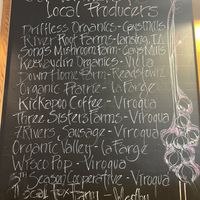 Local Producers
Driftless Organics - Gays Mills
River Root Farm - Lansing, IA
Song's Mushroom Farm - Gays Mills
Keewaydin Organics - Viola
Down Home Farm - Readstown
Organic Prairie - LaFarge
Kickapoo Coffee - Viroqua
Three Sisters Farms - Viroqua
7Rivers Sausage - Viroqua
Organic Valley - LaFarge
Wisco Pop - Viroqua
5th Season Cooperative - Viroqua
Farm - Westby